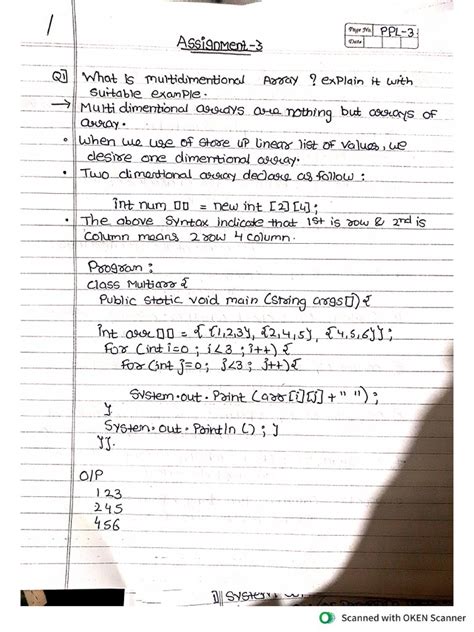 1
Page No. PPL-3
Date
Assignment-3
Q1 What is multidimentional Array ? explain it with
suitable example.
→ Multi dimentional arrays are nothing but arrays of
array.
• When we use of store up linear list of values, we
desire one dimentional array.
• Two dimentional array declare as follow :
int num [][] = new int [2][4];
• The above syntax indicate that 1st is row & 2nd is
column means 2 row 4 column.
Program :
class Multiarr {
Public static void main (String args[]) {
int arr [][] = { {1,2,3}, {2,4,5}, {4,5,6} };
For (int i=0 ; i<3 ; i++) {
For (int j=0 ; j<3 ; j++) {
System.out.Print (arr [i][j] + " ") ;
}
System.out.Println () ; }
}}.
O/P
1 2 3
2 4 5
4 5 6
System
Scanned with OKEN Scanner